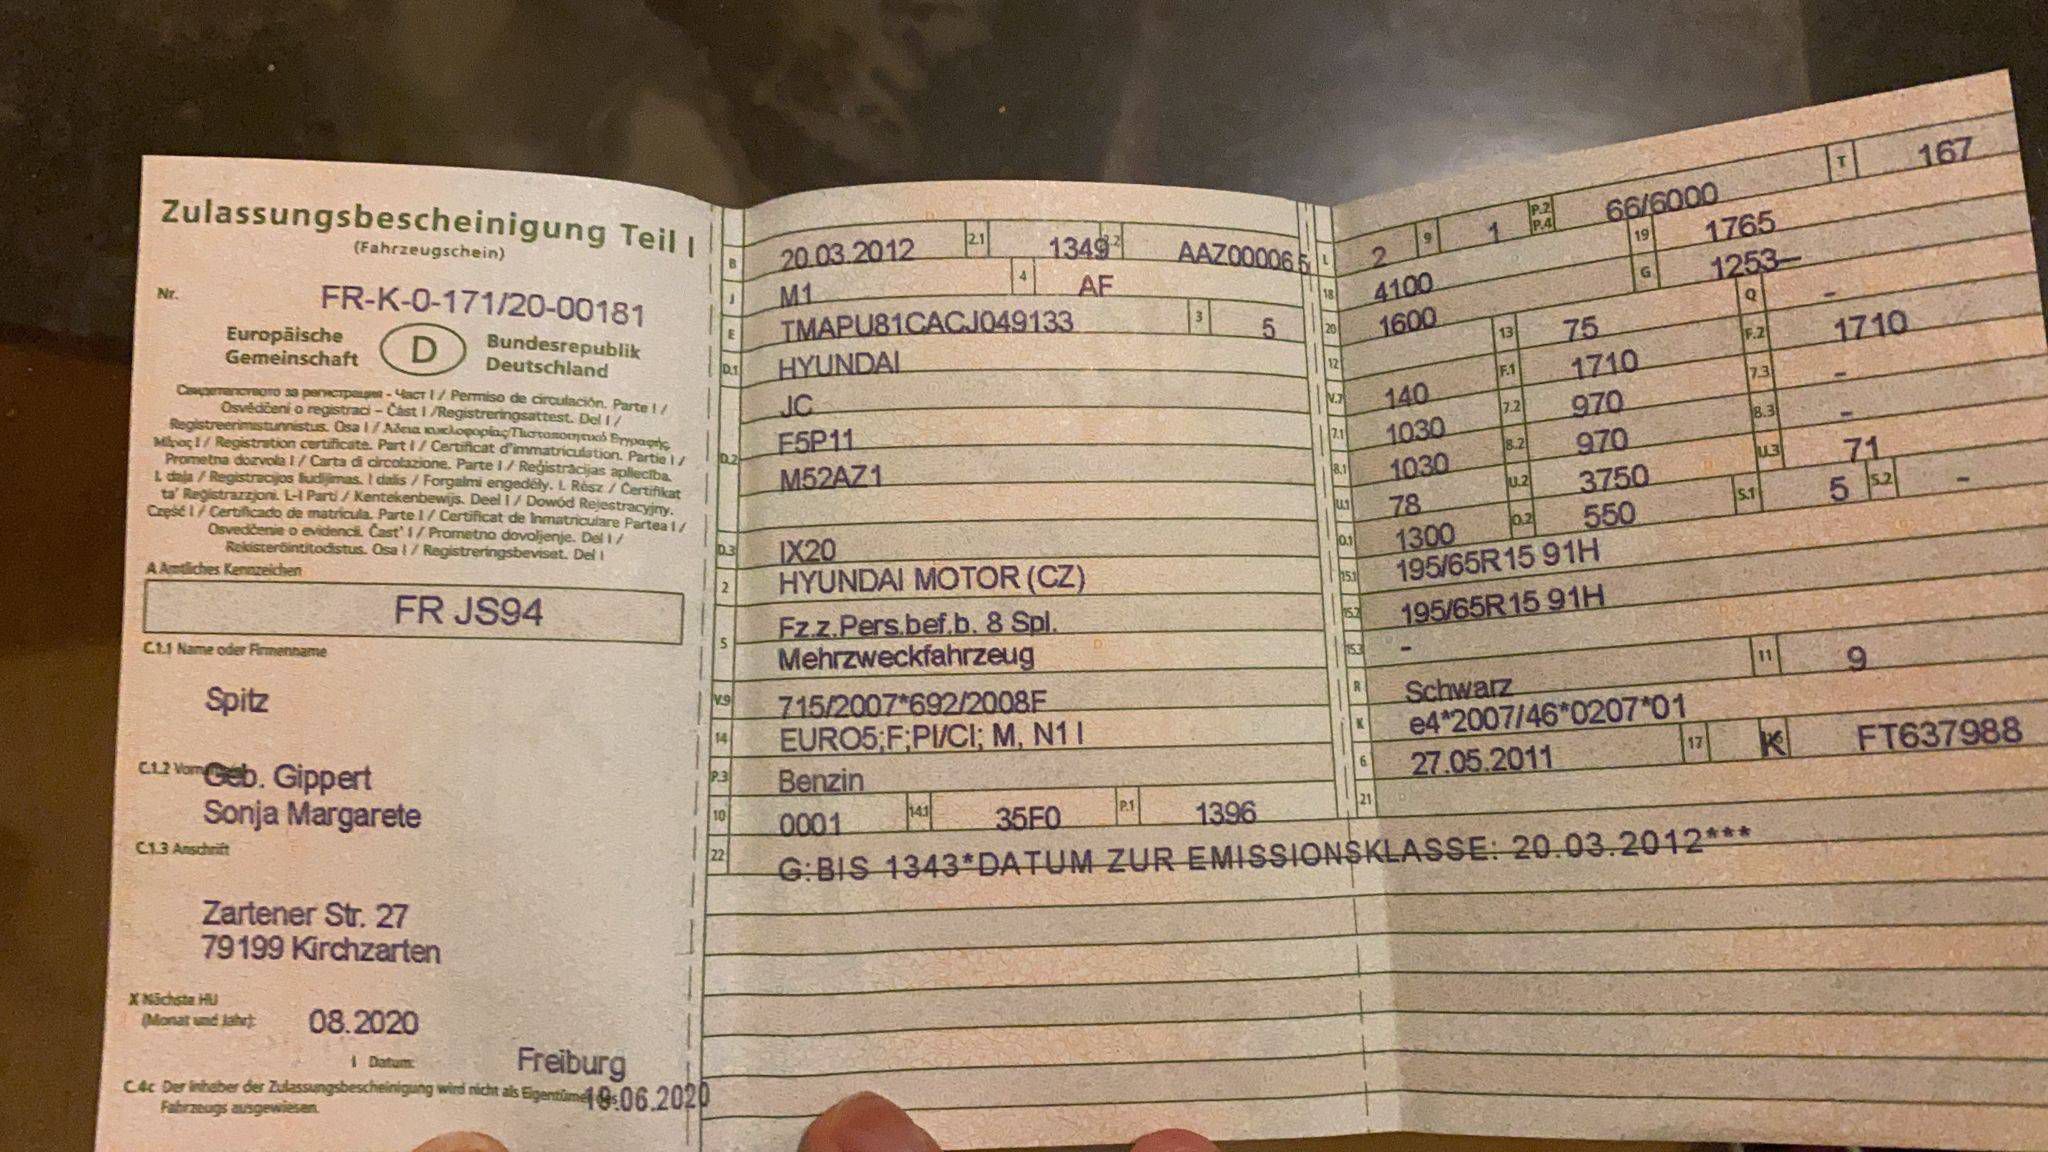 Zulassungsbescheinigung Teil I
(Fahrzeugschein)
Nr. FR-K-0-171/20-00181
Europäische Gemeinschaft D Bundesrepublik Deutschland
Свидетелство за регистрация - Част I / Permiso de circulación. Parte I /
Osvědčení o registraci – Část I /Registreringsattest. Del I /
Registreerimistunnistus. Osa I / Άδεια κυκλοφορίας/Πιστοποιητικό Εγγραφής
Μέρος I / Registration certificate. Part I / Certificat d'immatriculation. Partie I /
Prometna dozvola I / Carta di circolazione. Parte I / Reģistrācijas apliecība.
I. daļa / Registracijos liudijimas. I dalis / Forgalmi engedély. I. Rész / Ċertifikat
ta' Reġistrazzjoni. L-I Parti / Kentekenbewijs. Deel I / Dowód Rejestracyjny.
Część I / Certificado de matrícula. Parte I / Certificat de înmatriculare Partea I /
Osvedčenie o evidencii. Časť I / Prometno dovoljenje. Del I /
Rekisteröintitodistus. Osa I / Registreringsbeviset. Del I
A Amtliches Kennzeichen
FR JS94
C.1.1 Name oder Firmenname
Spitz
C.1.2
Geb. Gippert
Sonja Margarete
C.1.3 Anschrift
Zartener Str. 27
79199 Kirchzarten
X Nächste HU
(Monat und Jahr): 08.2020
I Datum: Freiburg
C.4c Der Inhaber der Zulassungsbescheinigung wird nicht als Eigentümer des
19.06.2020
Fahrzeugs ausgewiesen.
B 20.03.2012 2.1 1349 2.2 AAZ000065
J M1 4 AF
E TMAPU81CACJ049133 3 5
D.1 HYUNDAI
JC
D.2 F5P11
M52AZ1
D.3 IX20
2 HYUNDAI MOTOR (CZ)
5 Fz.z.Pers.bef.b. 8 Spl.
Mehrzweckfahrzeug
V.9 715/2007*692/2008F
14 EURO5;F;PI/CI; M, N1 I
P.3 Benzin
10 0001 14.1 35F0 P.1 1396
22 G:BIS 1343*DATUM ZUR EMISSIONSKLASSE: 20.03.2012***
L 2 9 1 P.2 P.4 66/6000 T 167
18 4100 19 1765
20 1600 G 1253–
12 13 75 Q -
V.7 140 F.1 1710 F.2 1710
7.1 1030 7.2 970 7.3 -
8.1 1030 8.2 970 8.3 -
U.1 78 U.2 3750 U.3 71
O.1 1300 O.2 550 S.1 5 S.2 -
15.1 195/65R15 91H
15.2 195/65R15 91H
15.3 -
R Schwarz 11 9
K e4*2007/46*0207*01
6 27.05.2011 17 K FT637988
21